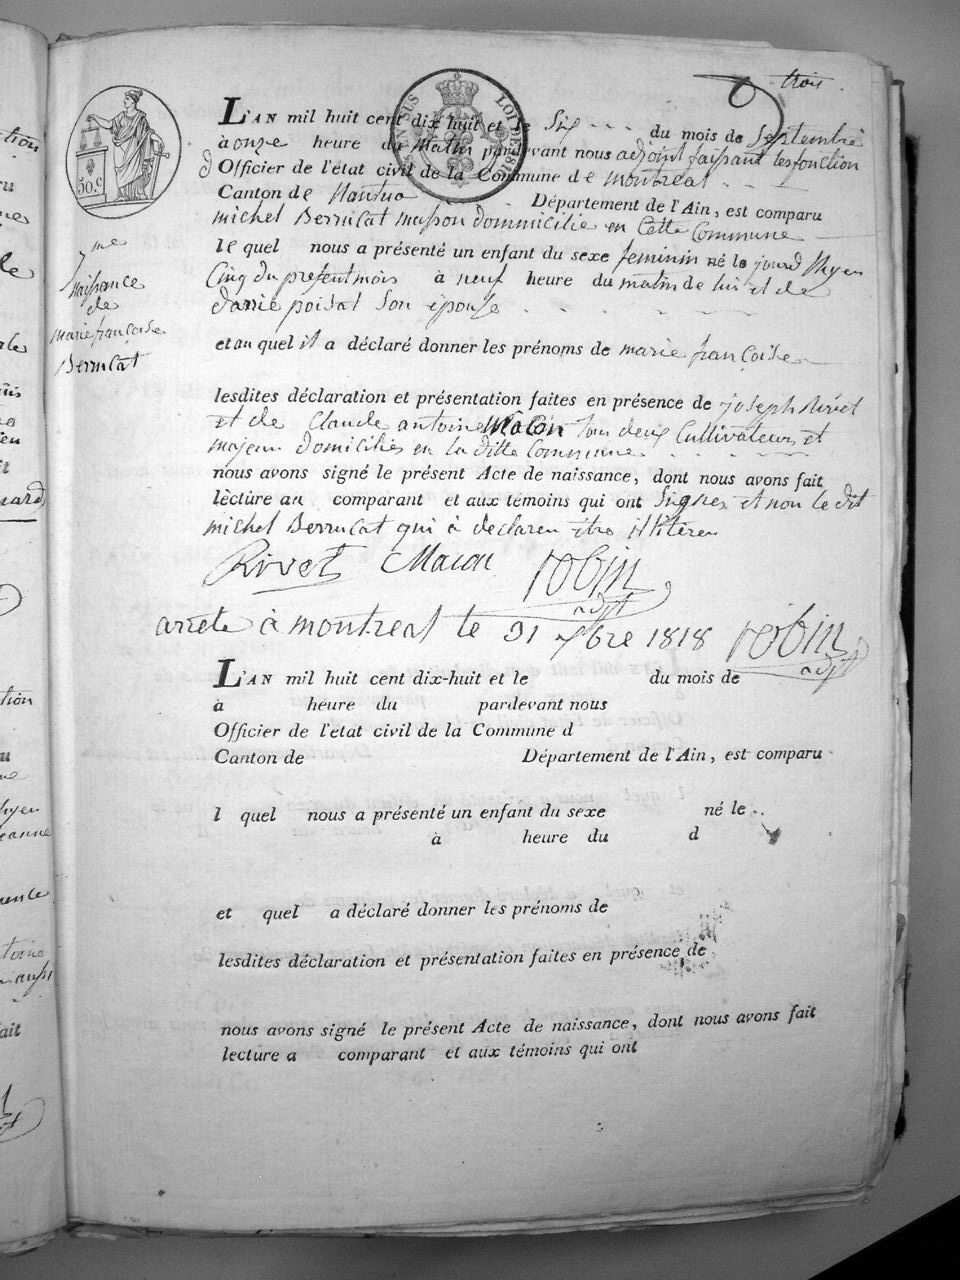 trois
50.c
LOI DE 181
L'AN mil huit cent dix huit et le Six du mois de Septembre
à onze heure du Matin pardevant nous adjoint faissant les fonction
d Officier de l'état civil de la Commune de montreal
Canton de Nantua Département de l'Ain, est comparu
michel Berrucat masson dommicilié en Cette Commune
le quel nous a présenté un enfant du sexe feminin né le jourd Hyer
Cinq du présent mois à neuf heure du matin de lui et de
poisat Son épouse
et au quel il a déclaré donner les prénoms de marie françoise
naissance
de
marie françoise
Berrucat
lesdites déclaration et présentation faites en présence de joseph Rivet
et de Claude antoine Macon tous deux Cultivateurs et
majeur Domiciliés en la ditte Commune
nous avons signé le présent Acte de naissance, dont nous avons fait
lecture au comparant et aux témoins qui ont Signés et non le dit
michel Berrucat qui à declaren être
Rivet Macon robin
adjt
arrete à montreal le 31 xbre 1818 robin
adjt
L'AN mil huit cent dix-huit et le du mois de
à heure du pardevant nous
Officier de l'état civil de la Commune d
Canton de Département de l'Ain, est comparu
l quel nous a présenté un enfant du sexe né le
à heure du d
et quel a déclaré donner les prénoms de
lesdites déclaration et présentation faites en présence de
nous avons signé le présent Acte de naissance, dont nous avons fait
lecture a comparant et aux témoins qui ont